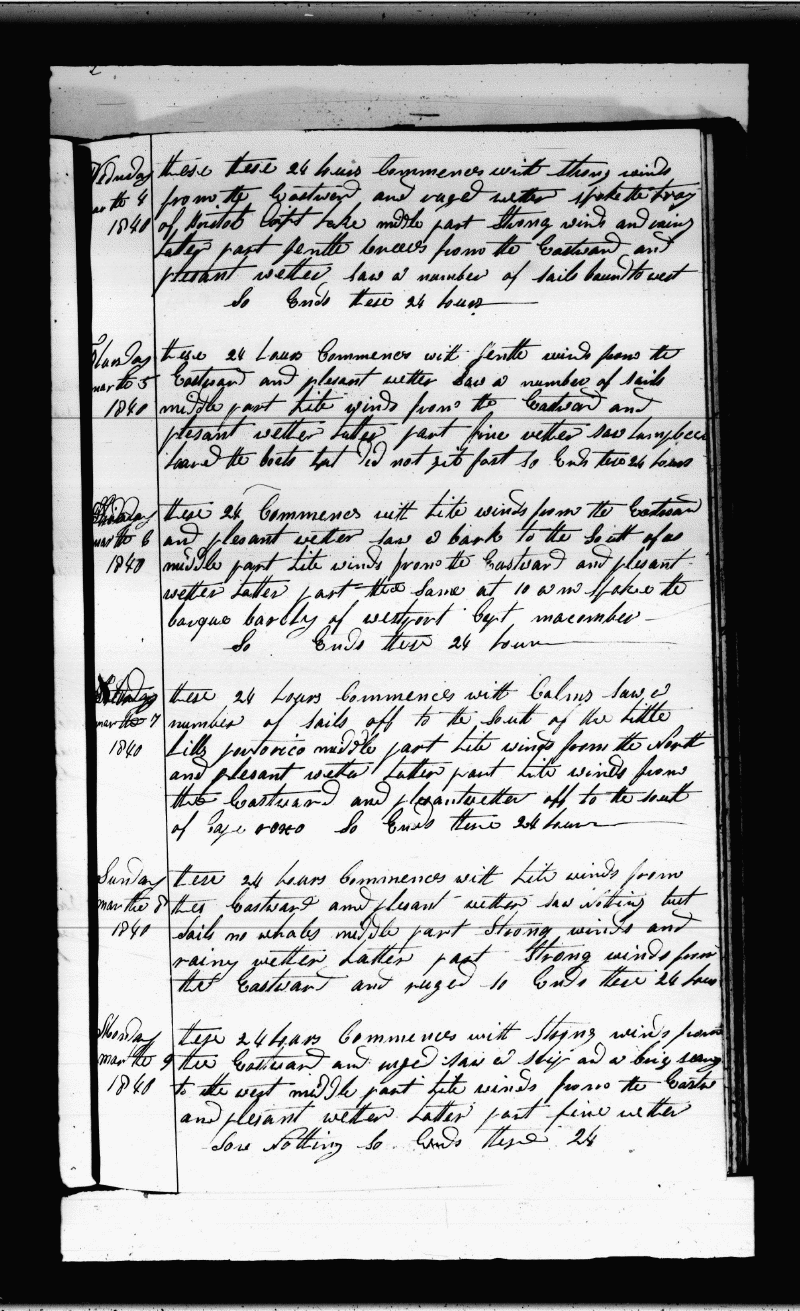 2
Wednesday
mar the 4
1840
these these 24 hours Commences with Strong winds
from the Eastward and ruged wetter spoke the brig
of Bristol Capt Lake middle part Strong wind and rainy
Latter part gentle breezes from the Eastward and
plesant wetter saw a number of sails bound to west
So Ends these 24 hours
Thursday
mar the 5
1840
these 24 hours Commences with gentle winds from the
Eastward and plesant wetter Saw a number of sails
middle part Lite winds from the Eastward and
plesant wetter Latter part fine wetter saw
the boets but Did not git fast So Ends these 24 hours
Friday
mar the 6
1840
these 24 Commences with Lite winds from the Eastward
and plesant wetter saw a bark to the South of us
middle part Lite winds from the Eastward and plesant
wetter Latter part the Same at 10 a m Spoke the
barque barcly of westport Capt macomber
So Ends these 24 hours
Saturday
mar the 7
1840
these 24 hours Commences with Calms Saw a
number of sails off to the South of the Little
hills portorico middle part Lite winds from the North
and plesant wetter Latter part Lite winds from
the Eastward and plesant wetter off to the south
of Cape roxo So Ends these 24 hours
Sunday
mar the 8
1840
these 24 hours Commences with Lite winds from
the Eastward and plesant wetter saw Nothing but
Sails no whales middle part Strong winds and
rainy wetter Latter part Strong winds from
the Eastward and ruged So Ends these 24 hours
Monday
mar the 9
1840
these 24 hours Commences with Strong winds from
the Eastward and ruged saw a Ship and a brig
to the west middle part Lite winds from the Eastw
and plesant wetter Latter part fine wetter
Saw Nothing So Ends these 24